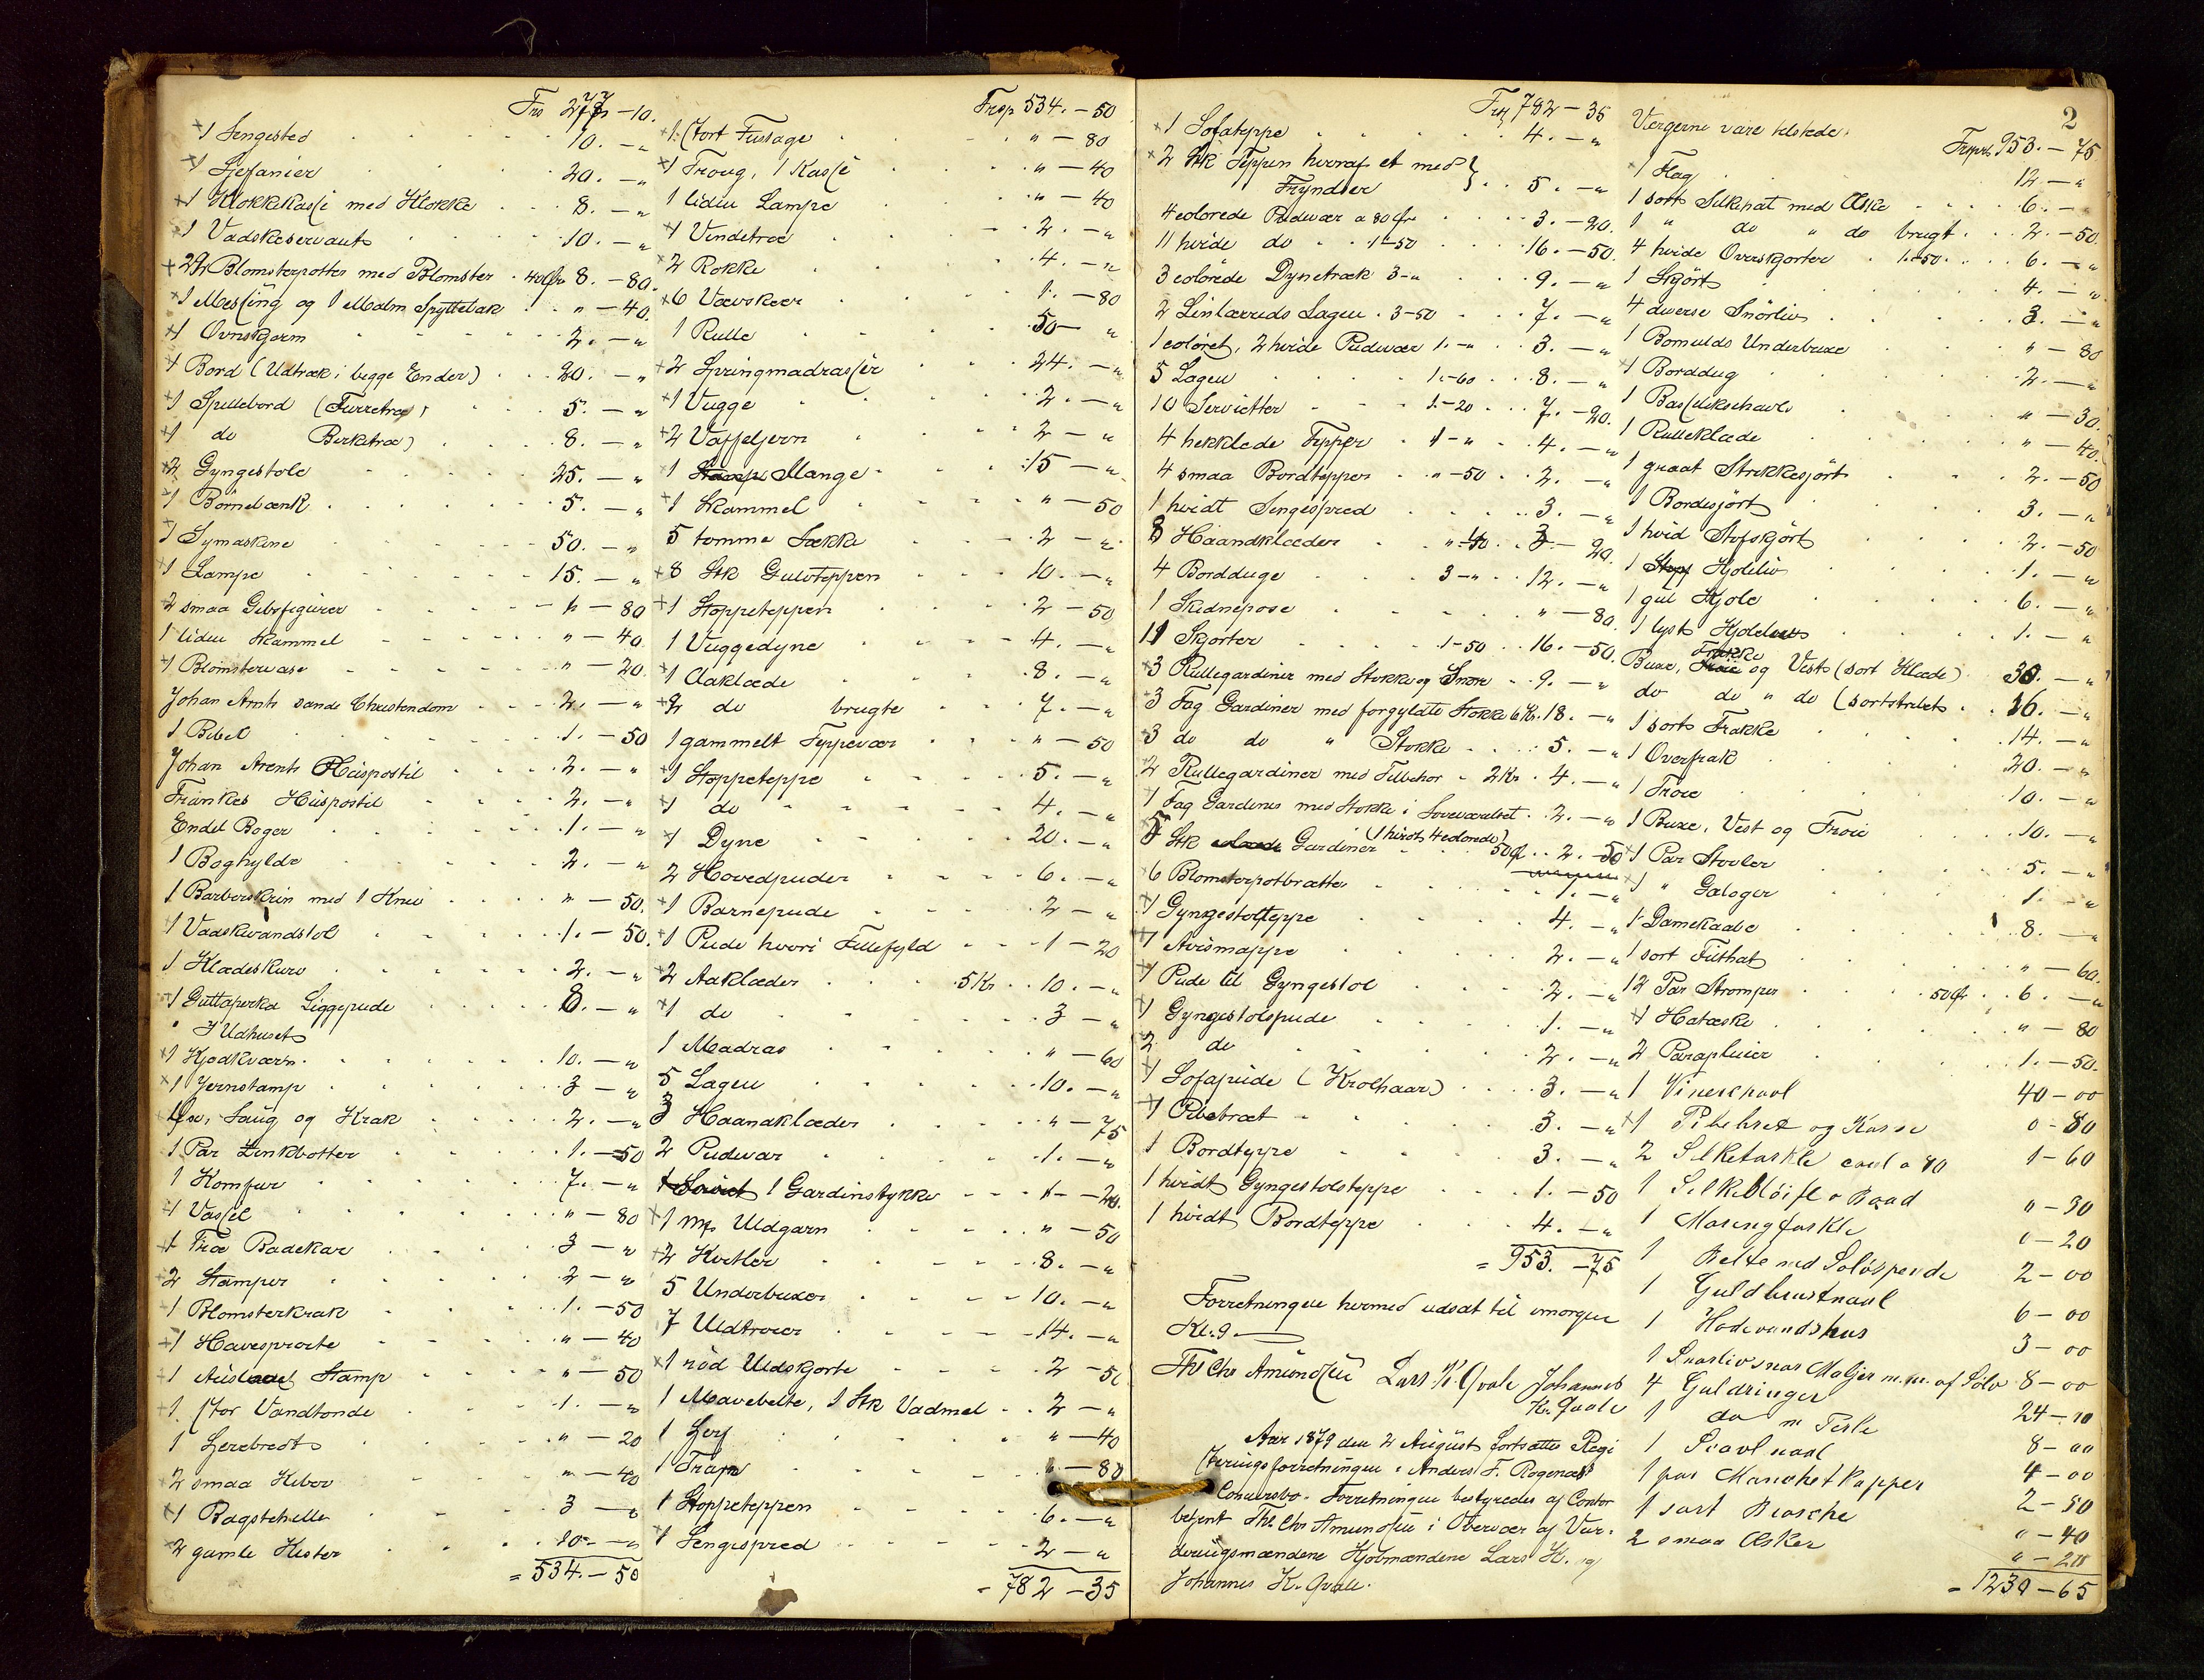 Frs 277 - 10.
x 1 Sengested 10. - "
x 1 Sjefanier 20. - "
x 1 Klokkekasse med Klokke 8. - "
x 1 Vadskeservant 10. - "
x 22 Blomsterpotter med Blomster 40 Øre 8. - 80.
x 1 Messing og 1 Malm Spyttebak " - 40.
x 1 Ovnskjerm 2. - "
x 1 Bord (Udtræk i begge Ender) 20. - "
x 1 Spillebord (Furretræ) 5. - "
x 1 do Birketræ) 8. - "
x 2 Gyngestole 25. - "
x 1 Børnebænk 5. - "
x 1 Symaskine 50. - "
x 1 Lampe 15. - "
x 2 smaa Gibsfigurer " - 80
1 liden Skammel " - 40
x 1 Blomstervase " - 20
Johan Arnts sande Christendom 2. - "
1 Bibel 1. - 50
Johan Arents Huspostil 2. - "
Frankes Huspostil 2. - "
Endel Bøger 1. - "
1 Boghylde 2. - "
1 Barberskrin med 1 Kniv " - 50.
x 1 Vadskevandstol 1. - 50.
1 Klædeskurv 2. - "
x 1 Guttaperka Liggepude 8. - "
I Udhuset
x 1 Kjødkværn 10. - "
x 1 Jernstamp 3 - "
1 Øx, Saug og Krak 2. - "
1 Par Zinkbøtter 1. - 50
1 Komfur 7. - "
x 1 Vassel " - 80
x 1 Træ Badekar 3 - "
x 2 Stamper 2 - "
x 1 Blomsterkrak 1. - 50
x 1 Havesprøite " - 40
x 1 Stamp " - 50
x 1 stor Vandtønde 1. - "
1 " - 20
x 2 smaa Kiber " - 40
x 1 Bagstehelle 3 - "
x 2 gamle Kister 10 - "
= 534. - 50
Frsp 534. - 50
x 1 stort Fustage " - 80
x 1 Troug, 1 Kasse " - 40
1 liden Lampe " - 40
x 1 Vindetræ 2. - "
x 2 Rokke 4. - "
x 6 Vævskeer 1. - 80
1 Rulle 50 - "
x 2 Springmadrasser 24. - "
x 1 Vugge 2. - "
x 2 Vaffeljern 2 - "
x 1 Slange 15 - "
x 1 Skammel " - 50
5 tomme Sække 2 - "
x 8 Stk Gulvteppen 10. - "
x 1 Stoppeteppen 2 - 50
1 Vuggedyne 4. - "
x 1 Aaklæde 8. - "
x 2 do brugte 7. - "
1 gammelt Teppevær " - 50
x 1 Stoppeteppe 5. - "
x 1 do 4. - "
x 1 Dyne 20. - "
2 Hovedpuder 6. - "
x 1 Barnepude 2 - "
x 1 Pude hvori Fillefyld 1 - 20
x 2 Aaklæder 5 Kr 10. - "
x 1 do 3 - "
1 Madras " - 60
5 Lagen 10. - "
3 Haandklæder " - 75
2 Pudevar 1. - "
1 Gardinstykke 1 - 20.
x 1 Mk Uldgarn " - 50
x 2 Kvitler 8. - "
5 Underbuxer 10. - "
7 Uldtrøier 14. - "
x 1 rød Uldskjorte 2 - 50
1 Mavebelte, 1 Stk Vadmel 2 - "
1 " - 40
1 " - 80
1 Stoppeteppen 6. - "
x 1 Sengespred 2 - "
= 782 - 35
Frs 782 - 35
x 1 Sofateppe 4. - "
x 2 Stk Teppen hvoraf et med } 5. - "
Fryndser
4 colorede Pudevær a 80 Øre 3. - 20.
11 hvide do 1 - 50 16. - 50.
3 colorede Dynetræk 3 - " 9. - "
2 Linlærreds Lagen 3 - 50 7. - "
1 coloret, 2 hvide Pudevær 1. - " 3. - "
5 Lagen 1. - 60 8. - "
10 Servietter 1. - 20 7. - 20.
4 hekklede Tepper 1 - " 4. - "
4 smaa Bordtepper " - 50 2. - "
1 hvidt Sengespred 3. - "
8 Haandklæder " - 40 3 - 20.
4 Borddúge 3 - " 12. - "
1 Skidnepose " - 80.
11 Skjorter 1 - 50 16. - 50.
x 3 Rullegardiner med Stokke og Snore 9. - "
x 3 Fag Gardiner med forgyldte Stokke 6 Kr. 18. - "
x 3 do do " Stokke 5. - "
2 Rullegardiner med Tilbehør 2 Kr 4. - "
x 1 Fag Gardiner med Stokke i Soveværelset 2. - "
5 Stk Gardiner (1 hvidt, 4 colorede) 50 Ø 2. - 50
x 6 Blomsterpotbrætter 1. - "
x 1 Gyngestolteppe 4. - "
x 1 Avismappe 2. - "
x 1 Pude til Gyngestol 2. - "
x 1 Gyngestolspude 1. - "
2 do 2. - "
x 1 Sofapude (Krølhaar) 3. - "
x 1 Pibebræt 3. - "
1 Bordteppe 3. - "
1 hvidt Gyngestolsteppe 1. - 50
1 hvidt Bordteppe 4. - "
= 953. - 75
Forretningen hermed udsat til imorgen
Kl. 9
Th Chr Amundsen Lars K. Qvale Johannes
K. Qvale
Aar 1879 den 2 August fortsattes Regi
streringsforretningen i Anders F. Rogenæs'
Concursbo. Forretningen bestyredes af Contor
betjent Th Chr Amundsen i Overvær af Vur-
deringsmændene Kjøbmændene Lars K. og
Johannes K. Qvale.
2
Vergerne vare tilstede.
Frsprt 953. - 75
x 1 Flag 12 - "
1 sort Silkehat med Æske 6. -
1 " do " do brugt 2. - 50.
4 hvide Overskjorter 1. - 50. 6. - "
1 Skjört 4. - "
4 diverse Snörliv 3. - "
1 Bomulds Underbuxe " - 80
x 1 Borddug 2. - "
1 " - 30.
1 Rulleklæde " - 40.
1 graat Strikkesjört 2. - 50
1 Bordesjört 3. - "
1 hvid Stofskjört 2. - 50
1 Kjoleliv 1. - "
1 gul Kjole 6. - "
1 lyst Kjoleliv 1. - "
Frakke
Buxe, og Vest (sort Klæde) 30. - "
do do " do (sortstribet 16. - "
1 sort Frakke 14. - "
1 Overfrak 20. - "
1 Trøie 10. - "
1 Buxe, Vest og Trøie 10. - "
x 1 Par Støvler 5. - "
x 1 " Galoger 1. - "
1 Damekaabe 8. - "
1 sort Filthat " - 60.
12 Par Strømper 50 Ø 6. - "
x 1 Hatæske " - 80
2 Parapluier 1. - 50.
1 40 - 00
x 1 Pibebræt og Kasse 0 - 80
2 Silketørklæ a 80 1 - 60
1 Silkesløife o Baand " - 30
1 0 - 20
1 Belte med Sølvspende 2 - 00
1 Guldbrustnaal 6 - 00
1 Hodevandshus 3 - 00
1 Maljer m.m. af Sølv 8 - 00
4 Guldringer 24 - 00
1 do m 8 - 00
1 Siavlnaal 4 - 00
1 par Manchetknapper 2 - 50
1 sort Brosche " - 40
2 smaa Æsker " - 20
= 1239 - 65